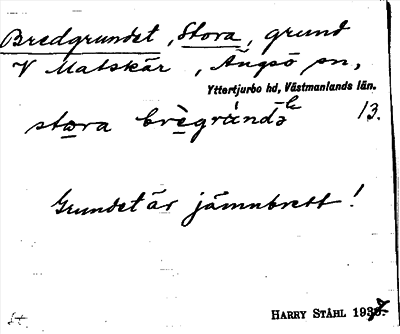 Bredgrundet, Stora, grund
V Matskär, Ängsö sn,
Yttertjurbo hd, Västmanlands län.
stora brègrúndə 13.
Grundet är jämnbrett!
HARRY STÅHL 1937.